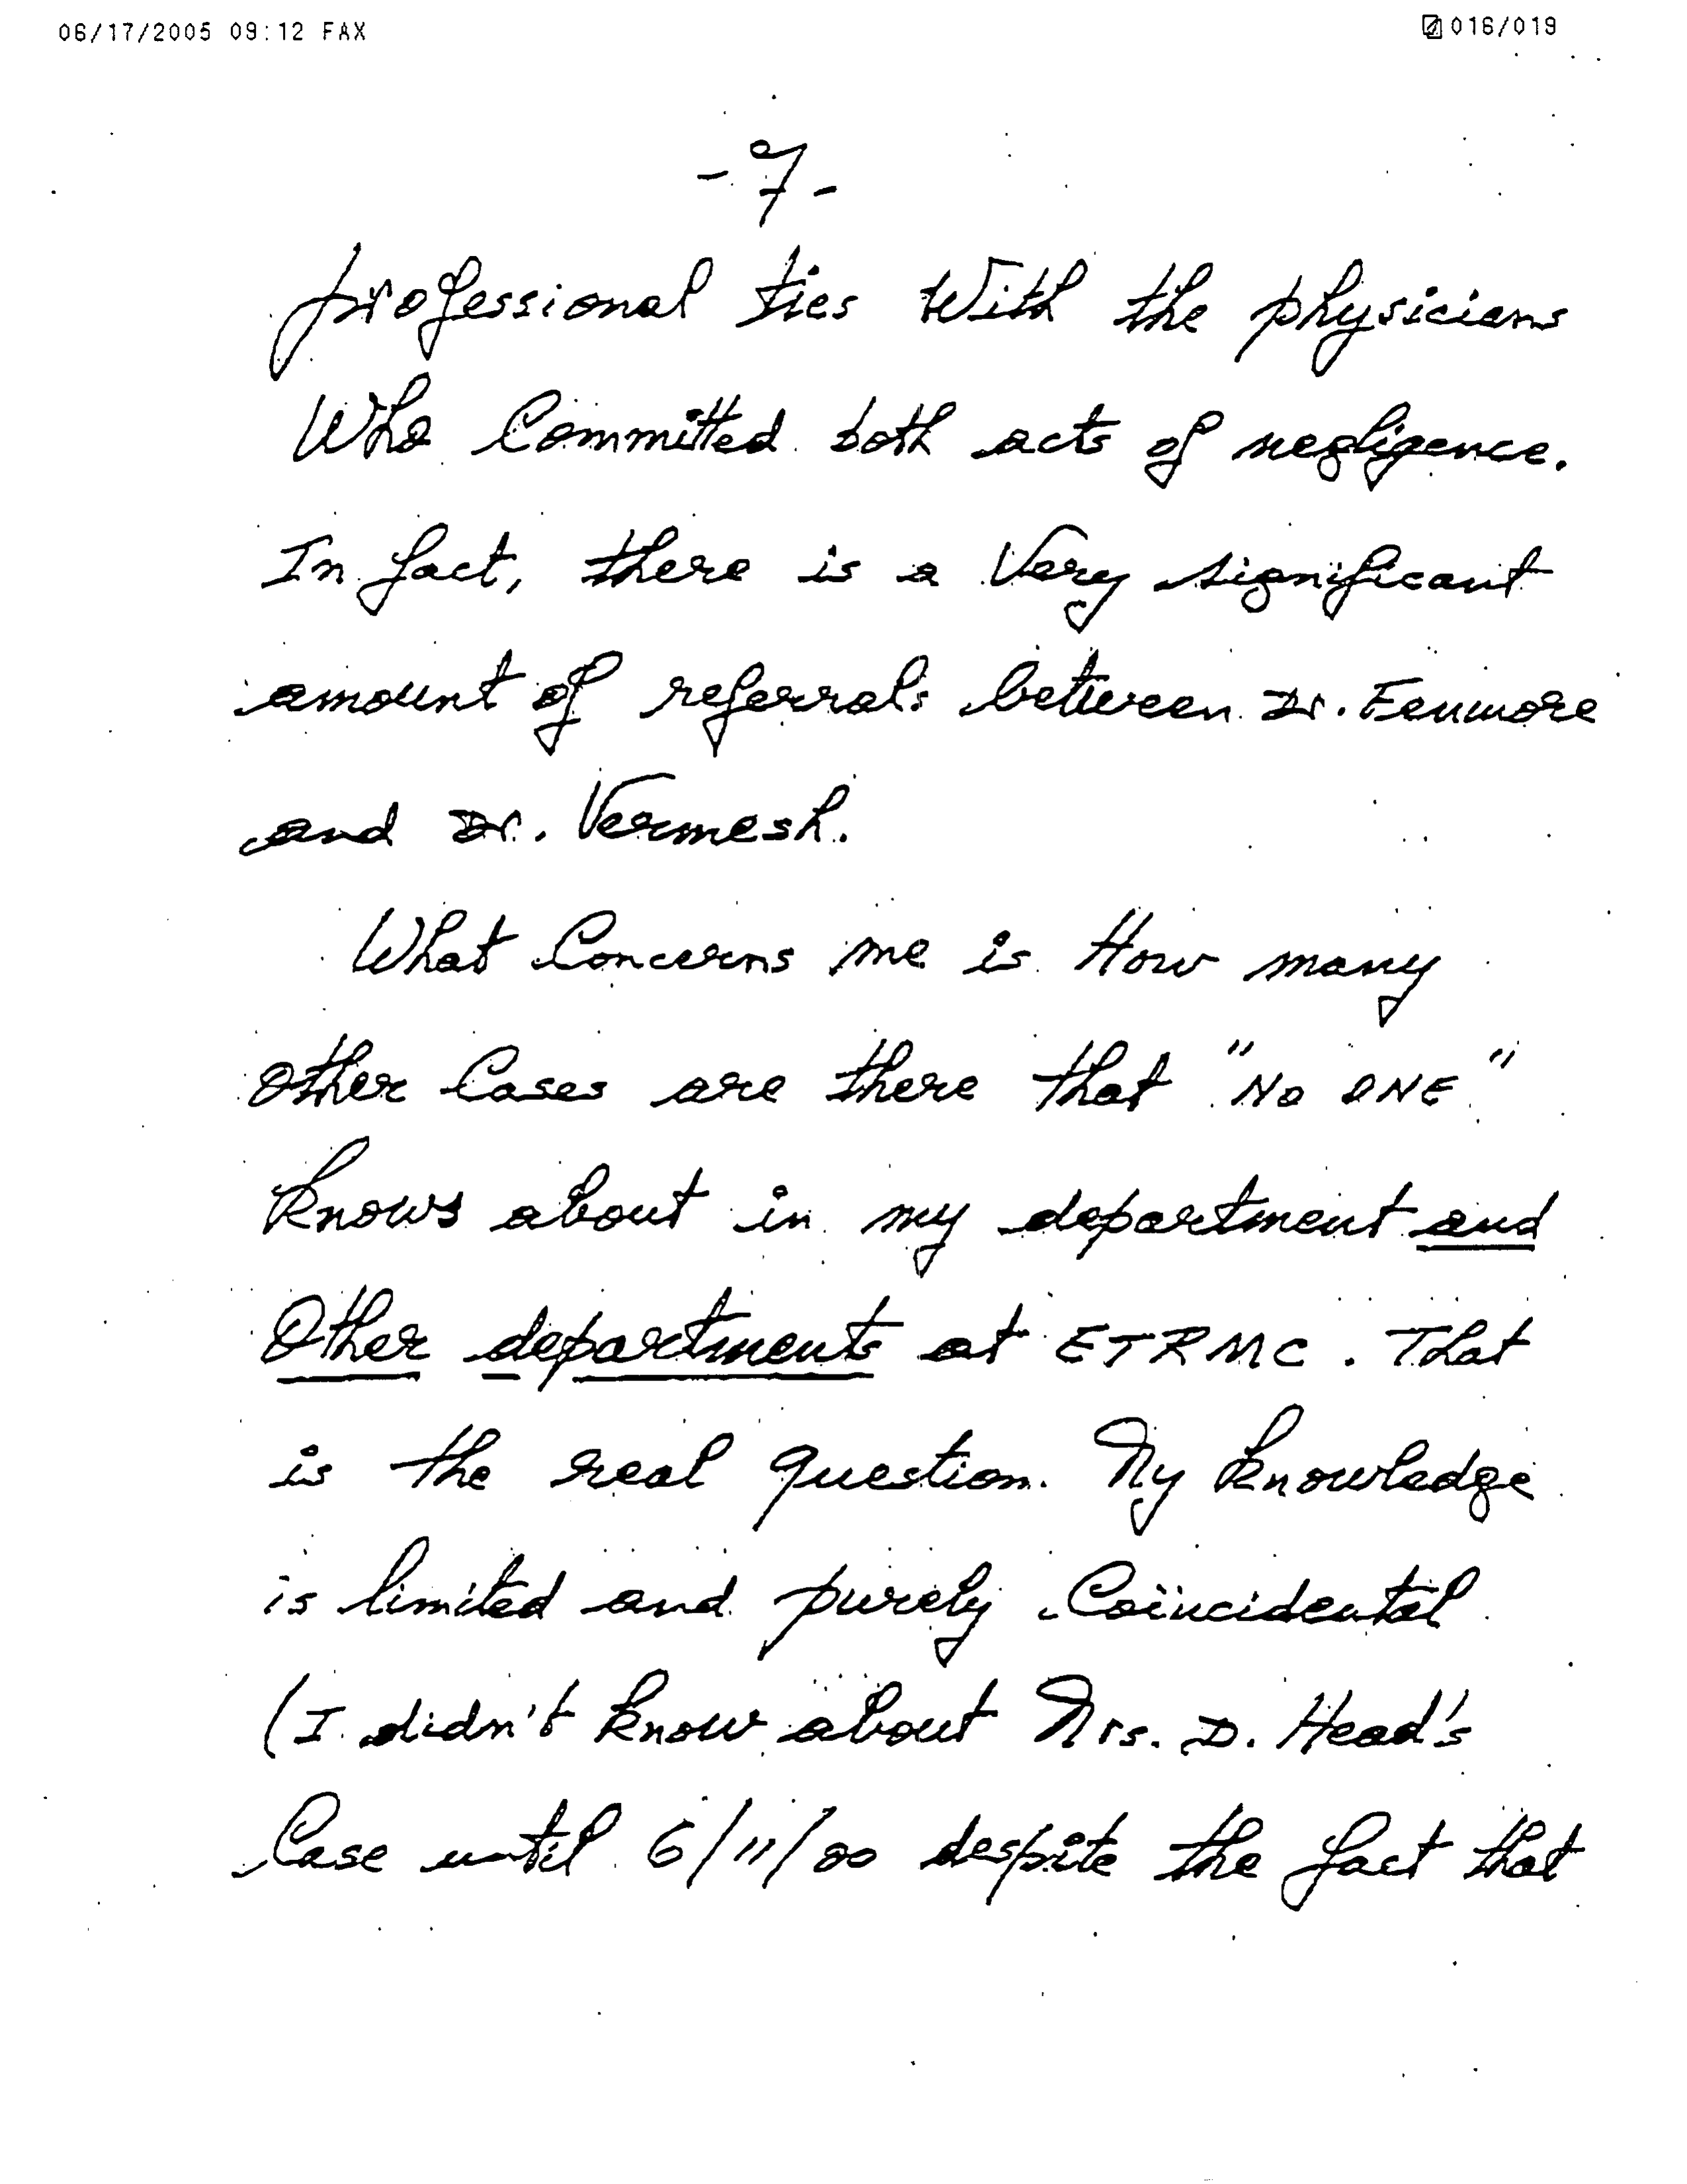 06/17/2005 09:12 FAX 016/019
-7-
professional ties With the physicians
Who Committed both acts of negligence.
In fact, there is a Very significant
amount of referrals between Dr. Fenmore
and Dr. Vermesh.
What Concerns me is How many
other Cases are there that "NO ONE"
knows about in my department and
Other departments at ETRMC. That
is the real question. My knowledge
is limited and purely Coïncidental
(I didn't know about Mrs. D. Head's
Case until 6/11/00 despite the fact that